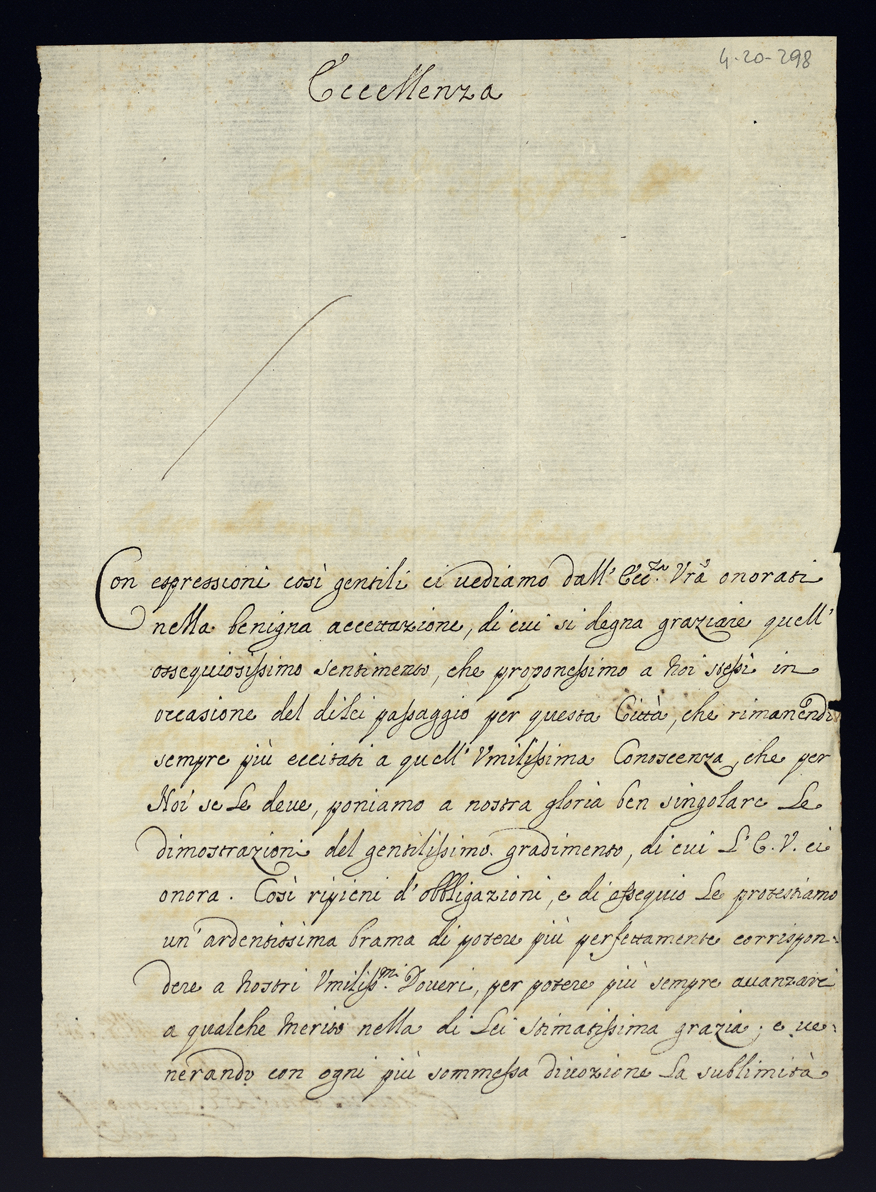 4-20-298
Eccellenza
Con espressioni così gentili ci vediamo dall' Ecc.za Vrã onorati
nella benigna accettazione, di cui si degna graziare quell'
ossequiosissimo sentimento, che proponessimo a Noi stessi in
occasione del di Lei passaggio per questa Città, che rimanendo
sempre più eccitati a quell' Umilissima Conoscenza, che per
Noi se Le deve, poniamo a nostra gloria ben singolare Le
dimostrazioni del gentilissimo gradimento, di cui L' E. V. ci
onora. Così ripieni d' obbligazioni, e di ossequio Le protestiamo
un' ardentissima brama di potere più perfettamente corrispon=
dere a Nostri Umiliss.mi Doveri, per potere più sempre avanzarci
a qualche merito nella di Lei stimatissima grazia; e ve=
nerando con ogni più sommessa divozione La sublimità